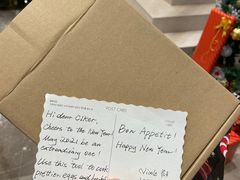 POST CARD
Hi dear Olker.
Cheers to the New Year!
May 2021 be an
extraordinary one!
Use this tool to cook
prettier eggs and
Bon Appetit!
Happy New Year!